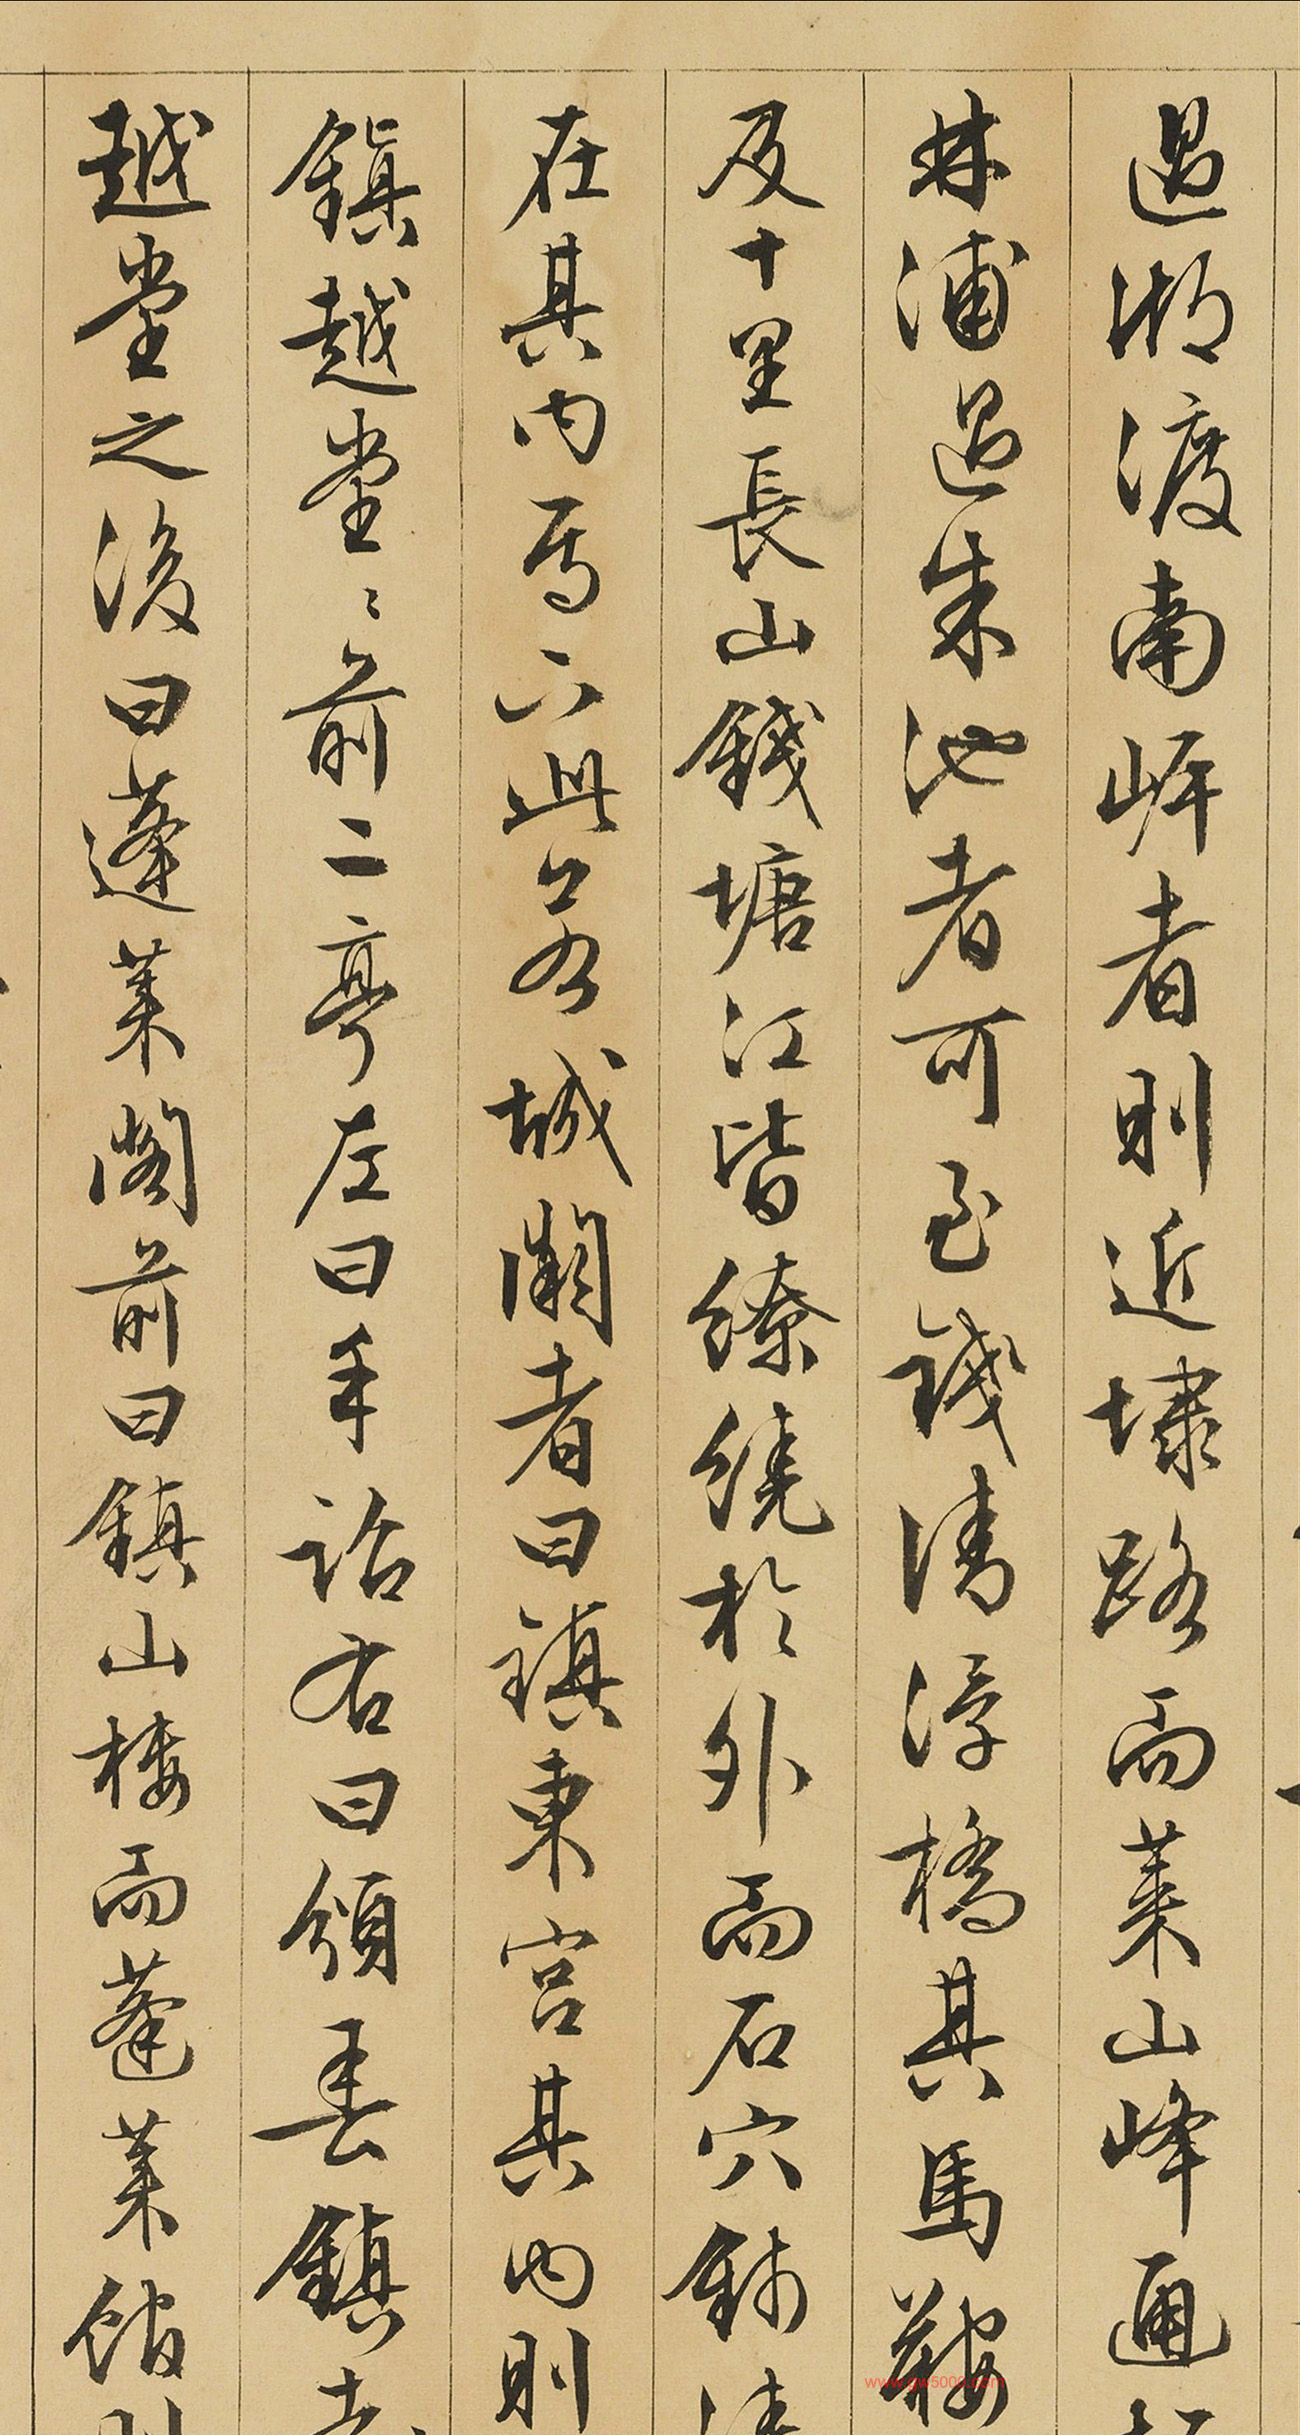 過湖渡南岸者則近埭路而萊山峰通
林浦過朱池者可至錢清浮橋其馬鞍
及十里長山錢塘江皆繚繞於外而石穴錢清
在其内焉六此公若城闕者曰鎮東宮其内則
鎮越堂〻前二亭左曰手詔右曰頒春鎮
越堂之後曰蓬萊閣前曰鎮山樓而蓬萊館則
www.gw5000.com